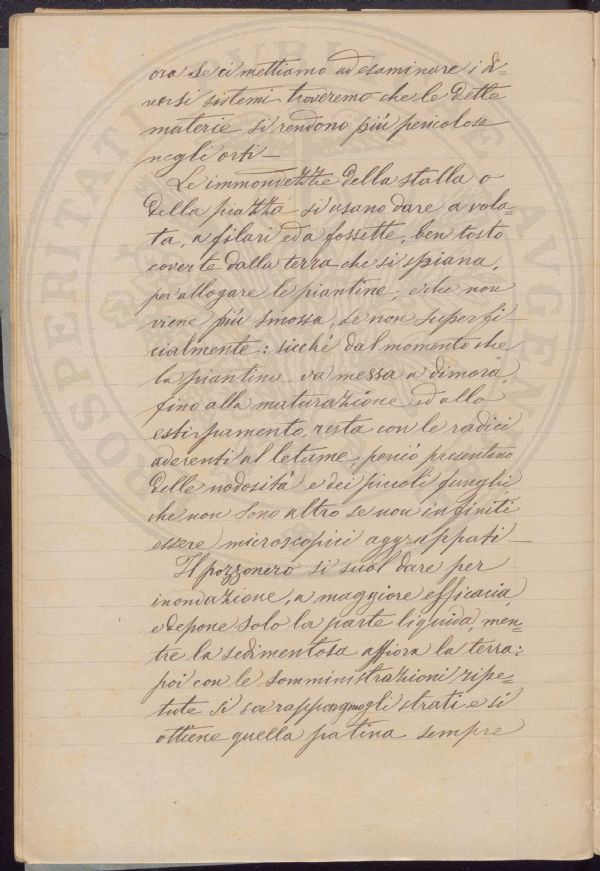 ora se ci mettiamo ad esaminare i di=
versi sistemi troveremo che le dette
materie si rendono più pericolose
negli orti —
Le immondezze della stalla o
della piazza si usano dare a vola-
ta, a filari ed a fossette, ben tosto
coverte dalla terra che si spiana,
per allogare le piantine, e che non
viene più smossa, se non superfi
cialmente: sicchè dal momento che
la piantina va messa a dimora,
fino alla maturazione ed allo
estirpamento, resta con le radici
aderenti al letame, perciò presentano
delle nodosità e dei piccoli funghi
che non sono altro se non infiniti
essere microscopici aggruppati —
Il pozzonero si suol dare per
inondazione, a maggiore efficacia,
e depone solo la parte liquida, men=
tre la sedimentosa affiora la terra:
poi con le somministrazioni ripe=
tute si sovrappongono gli strati e si
ottiene quella patina sempre
PROSPERITATI PUBLICAE AUGENDAE